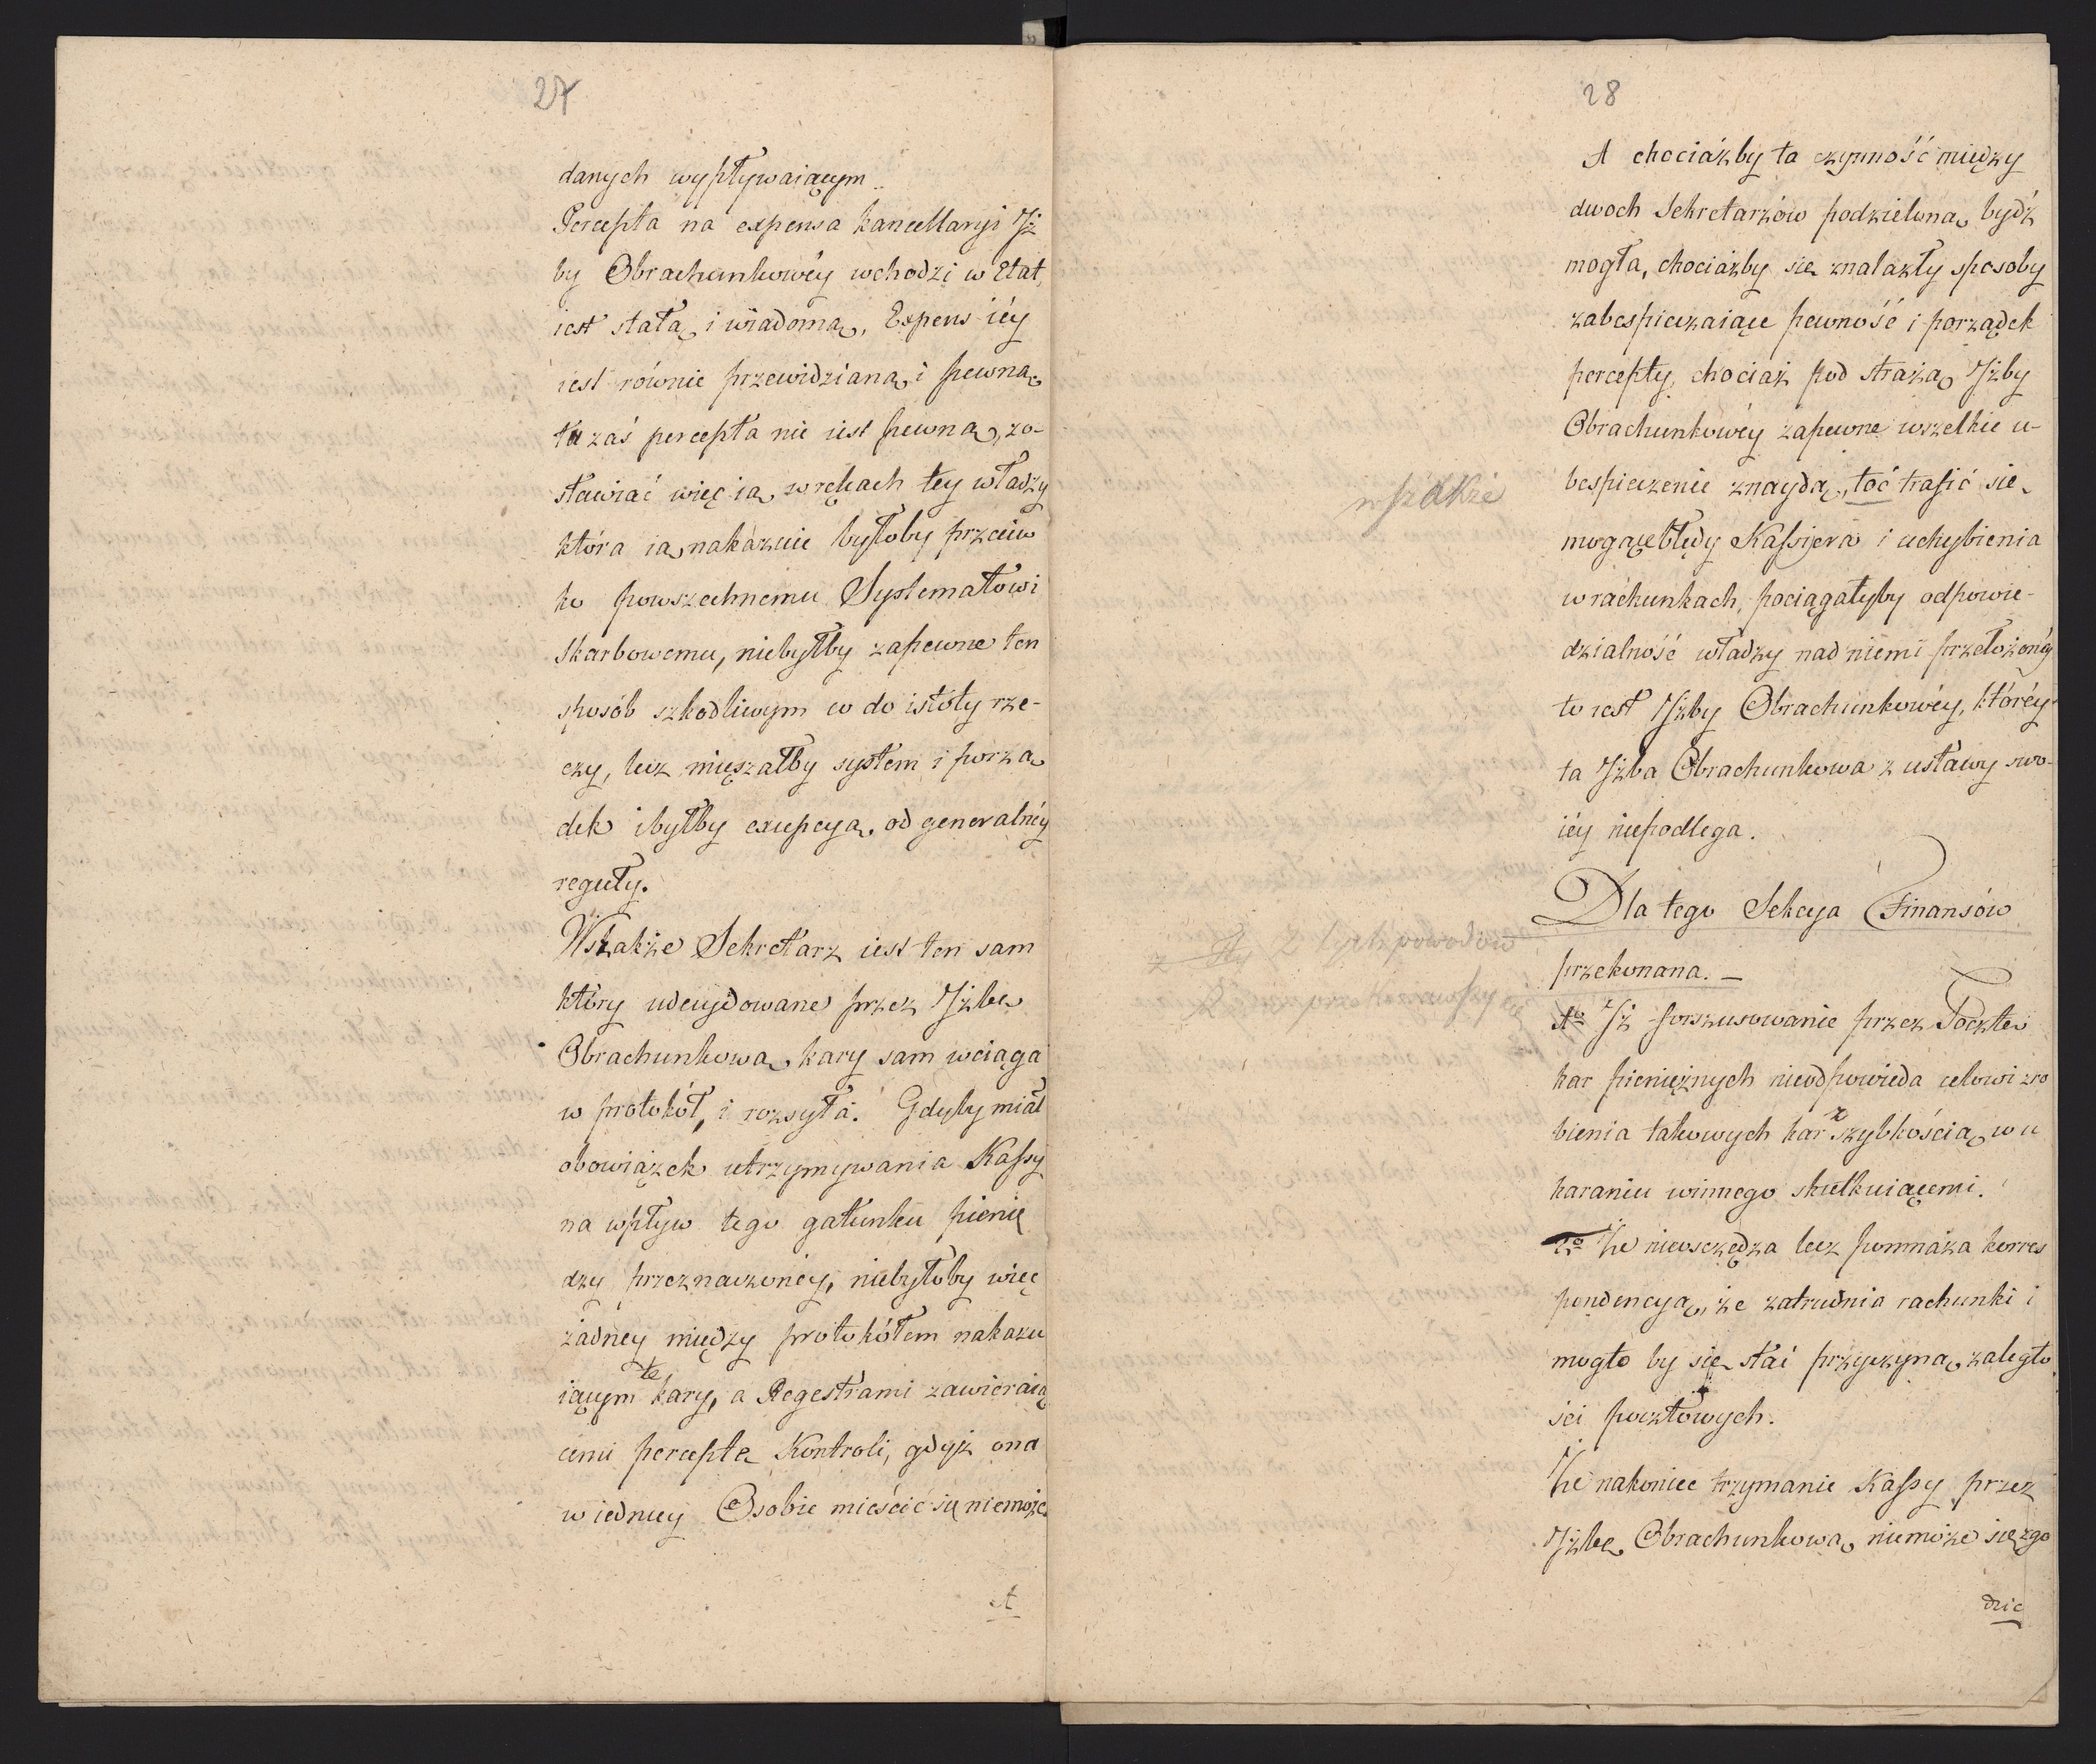 27
danych wypływaiącym.
Percepta na expensa kancellaryi Iż
by Obrachunkowéy wchodzi w Etat,
iest stałą i wiadomą, Expens iéy
iest równie przewidzianą i pewną,
tu zaś percepta nie iest pewną, zo-
stawiać więc ią w rękach tey władzy
która ią nakazuie byłoby przeciw
ko powszechnemu Systematowi
skarbowemu, niebyłby zapewne ten
sposób szkodliwym co do istoty rze-
czy, lecz mięszałby system i porzą
dek i byłby excepcyą od generalnéy
reguły.
Wszakże Sekretarz iest ten sam
który udecydowane przez Iżbę
Obrachunkową kary sam wciąga
w protokół, i rozsyła. Gdyby miał
obowiązek utrzymywania Kassy
na wpływ tego gatunku pienię
dzy przeznaczoney, niebyłoby więc
żadney między protokółem nakazu
iącym te kary, a Regestrami zawieraią
cemi perceptę Kontroli, gdyż ona
w iedney Osobie mieścić się niemoże.
A
28
A chociażby ta czynność między
dwoch Sekretarzów podzieloną bydź
mogła, chociażby się znalazły sposoby
zabespieczaiące pewność i porządek
percepty, chociaż pod strażą Iżby
Obrachunkowéy zapewne wszelkie u-
bespieczenie znaydą, toć trafić się
wszakże
mogące błędy Kassyera i uchybienia
w rachunkach, pociągałyby odpowie-
dzialność władzy nad niemi przełożonéy
to iest Iżby Obrachunkowéy, któréy
ta Iżba Obrachunkowa z ustawy swo-
iéy niepodlega.
Dla tego Sekcya Finansów
z tych powodów
przekonana. —
1o Iż forszusowanie przez Pocztę
kar pieniężnych nieodpowieda celowi zro
bienia takowych kar z szybkością w u
karaniu winnego skutkuiącemi.
2o Że nieosczędza lecz pomnaża korres
pondencyą, że zatrudnia rachunki i
mogło by się stać przyczyną zaległo
ści pocztowych.
Że nakoniec trzymanie Kassy przez
Iżbę Obrachunkową niemoże się zgo
dzić